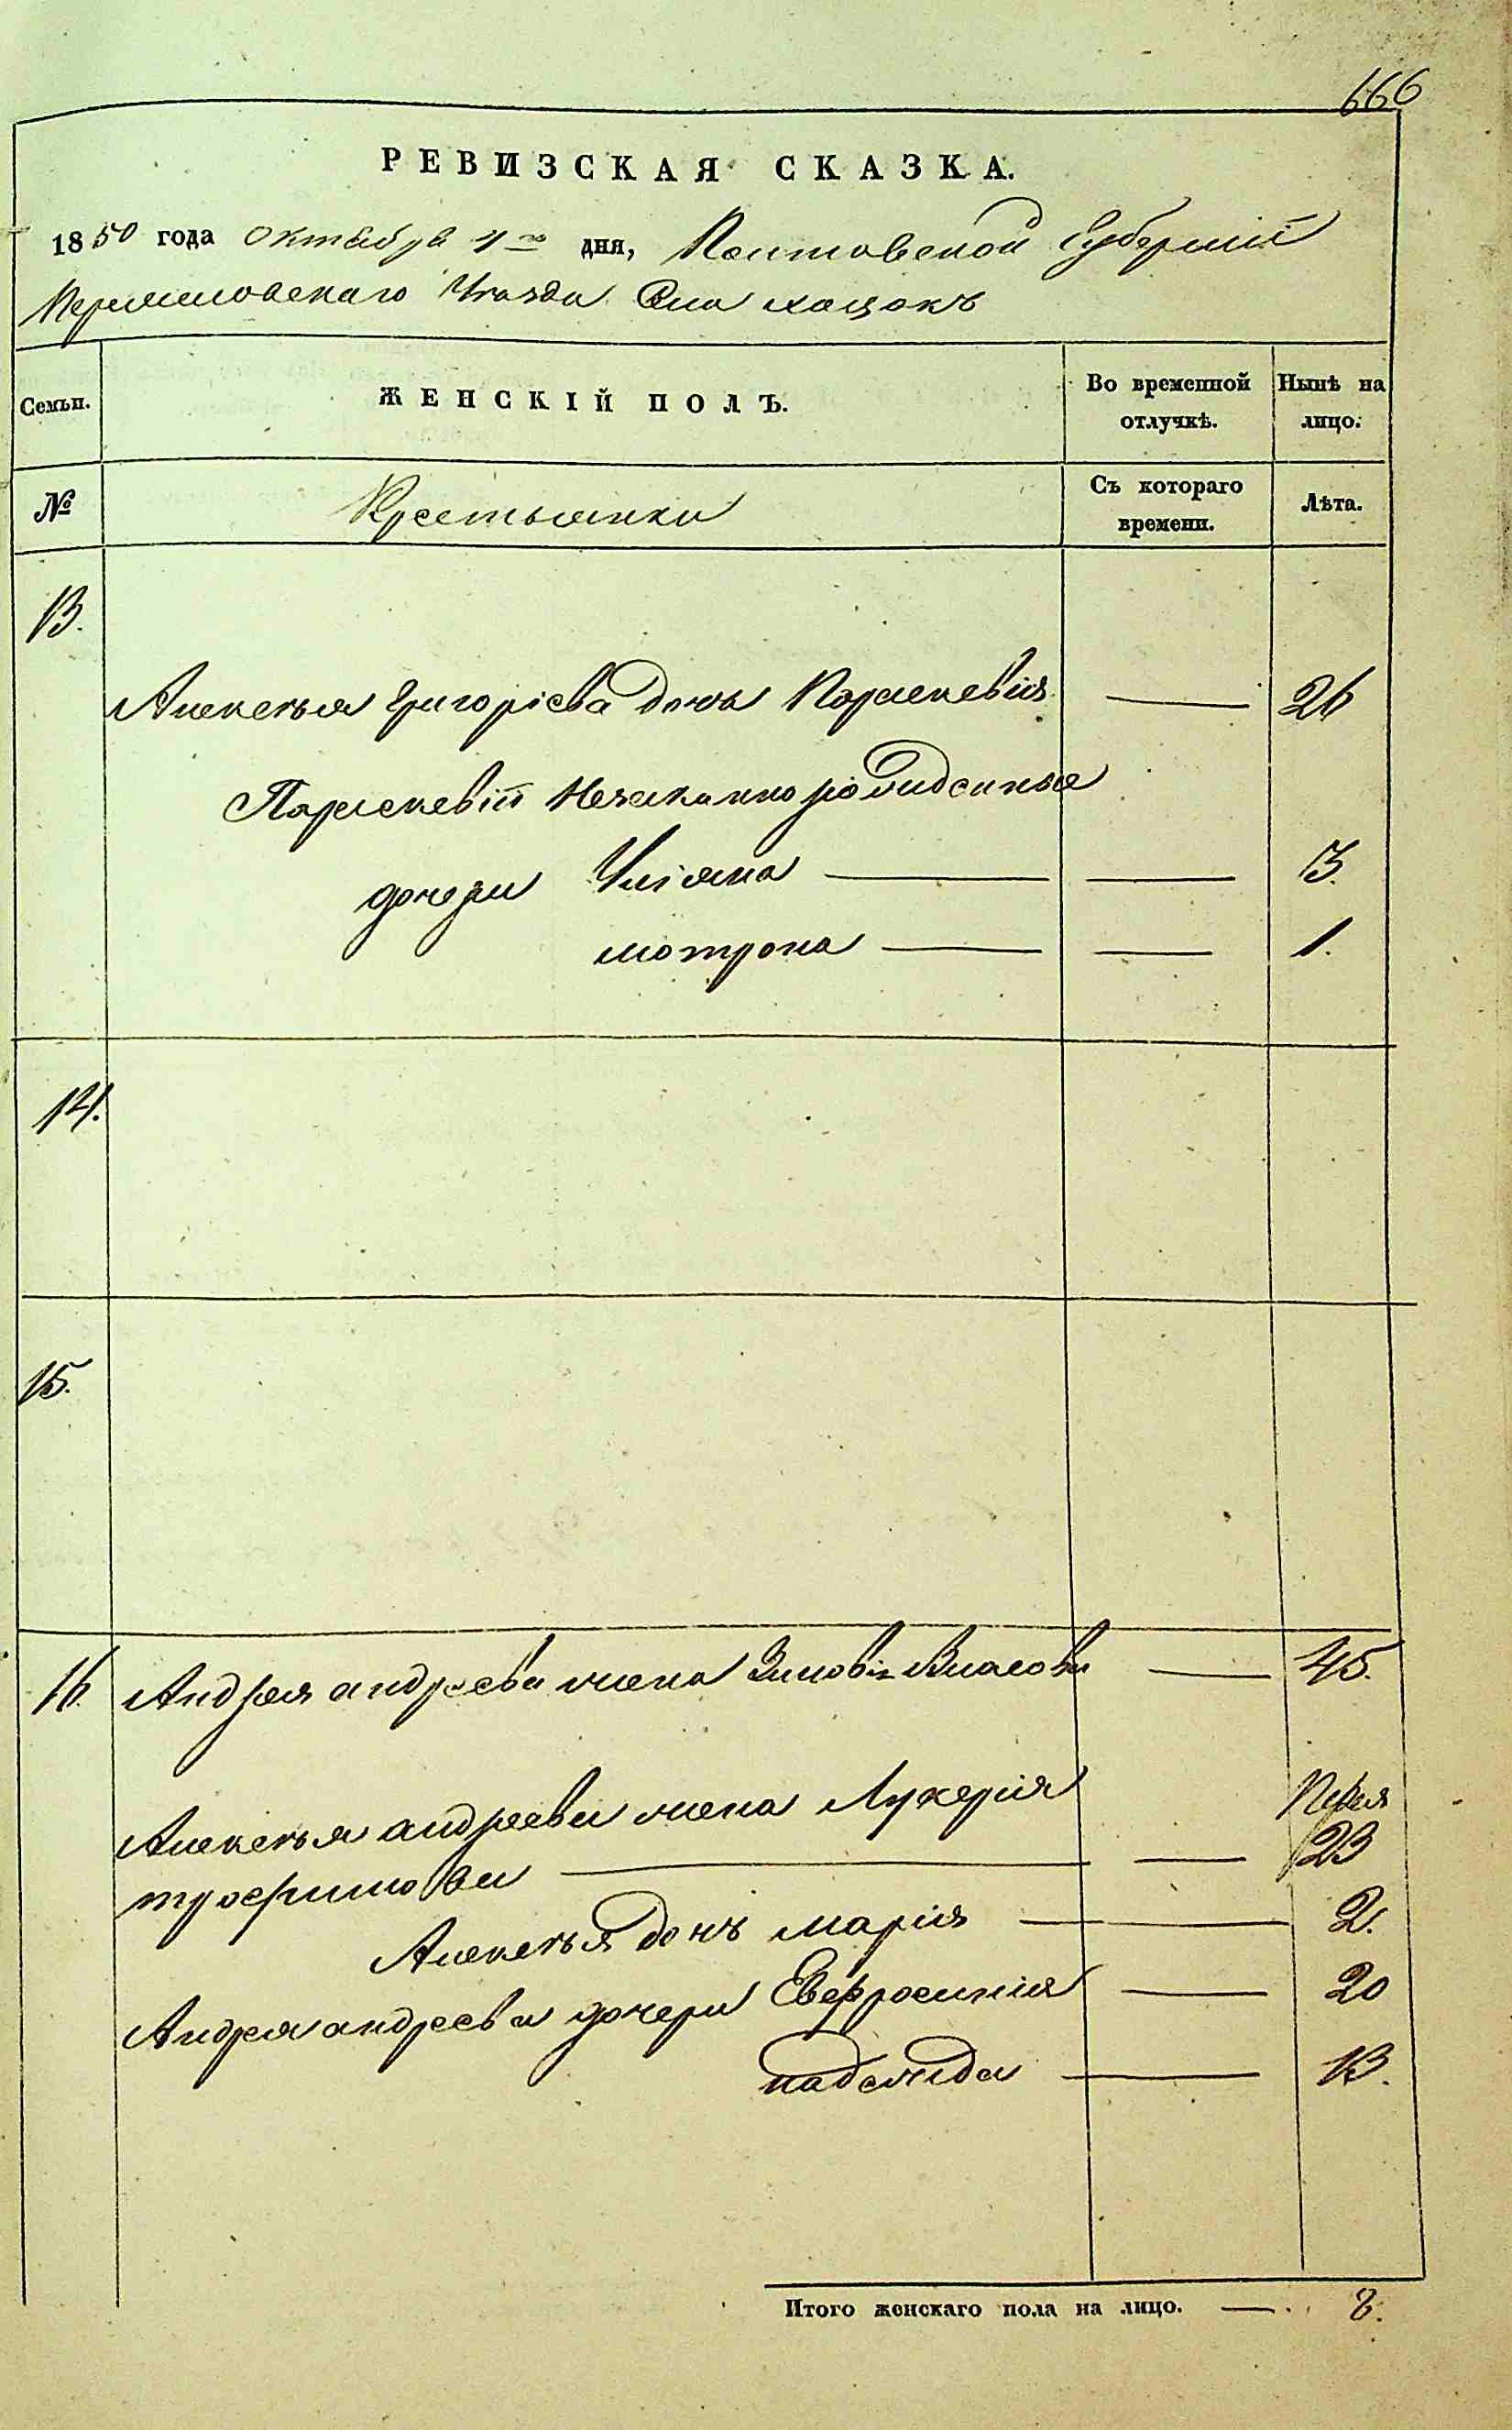 666
РЕВИЗСКАЯ СКАЗКА.
1850 года Октября 4го дня, Полтавской Губерніи
Села хоцокъ
Семьи. ЖЕНСКІЙ ПОЛЪ. Во временной отлучкѣ. Нынѣ на лицо.
№ Крестьянки Съ котораго времени. Лѣта.
13.
Алексѣя Григоріева дочь Параскевія — 26
Параскевіи Незаконнорожденные
дочери Уліяна — — 3.
мотрона — — 1.
14.
15.
16. Андрея андреева жена Зиновія Власова — 45.
Алексѣя андреева жена Лукерія
трофимова — — 23
Алексѣя дочь марія — — 2.
Андрея андреева дочери Евфросинія — 20
надежда — 13.
Итого женскаго пола на лицо. — 8.